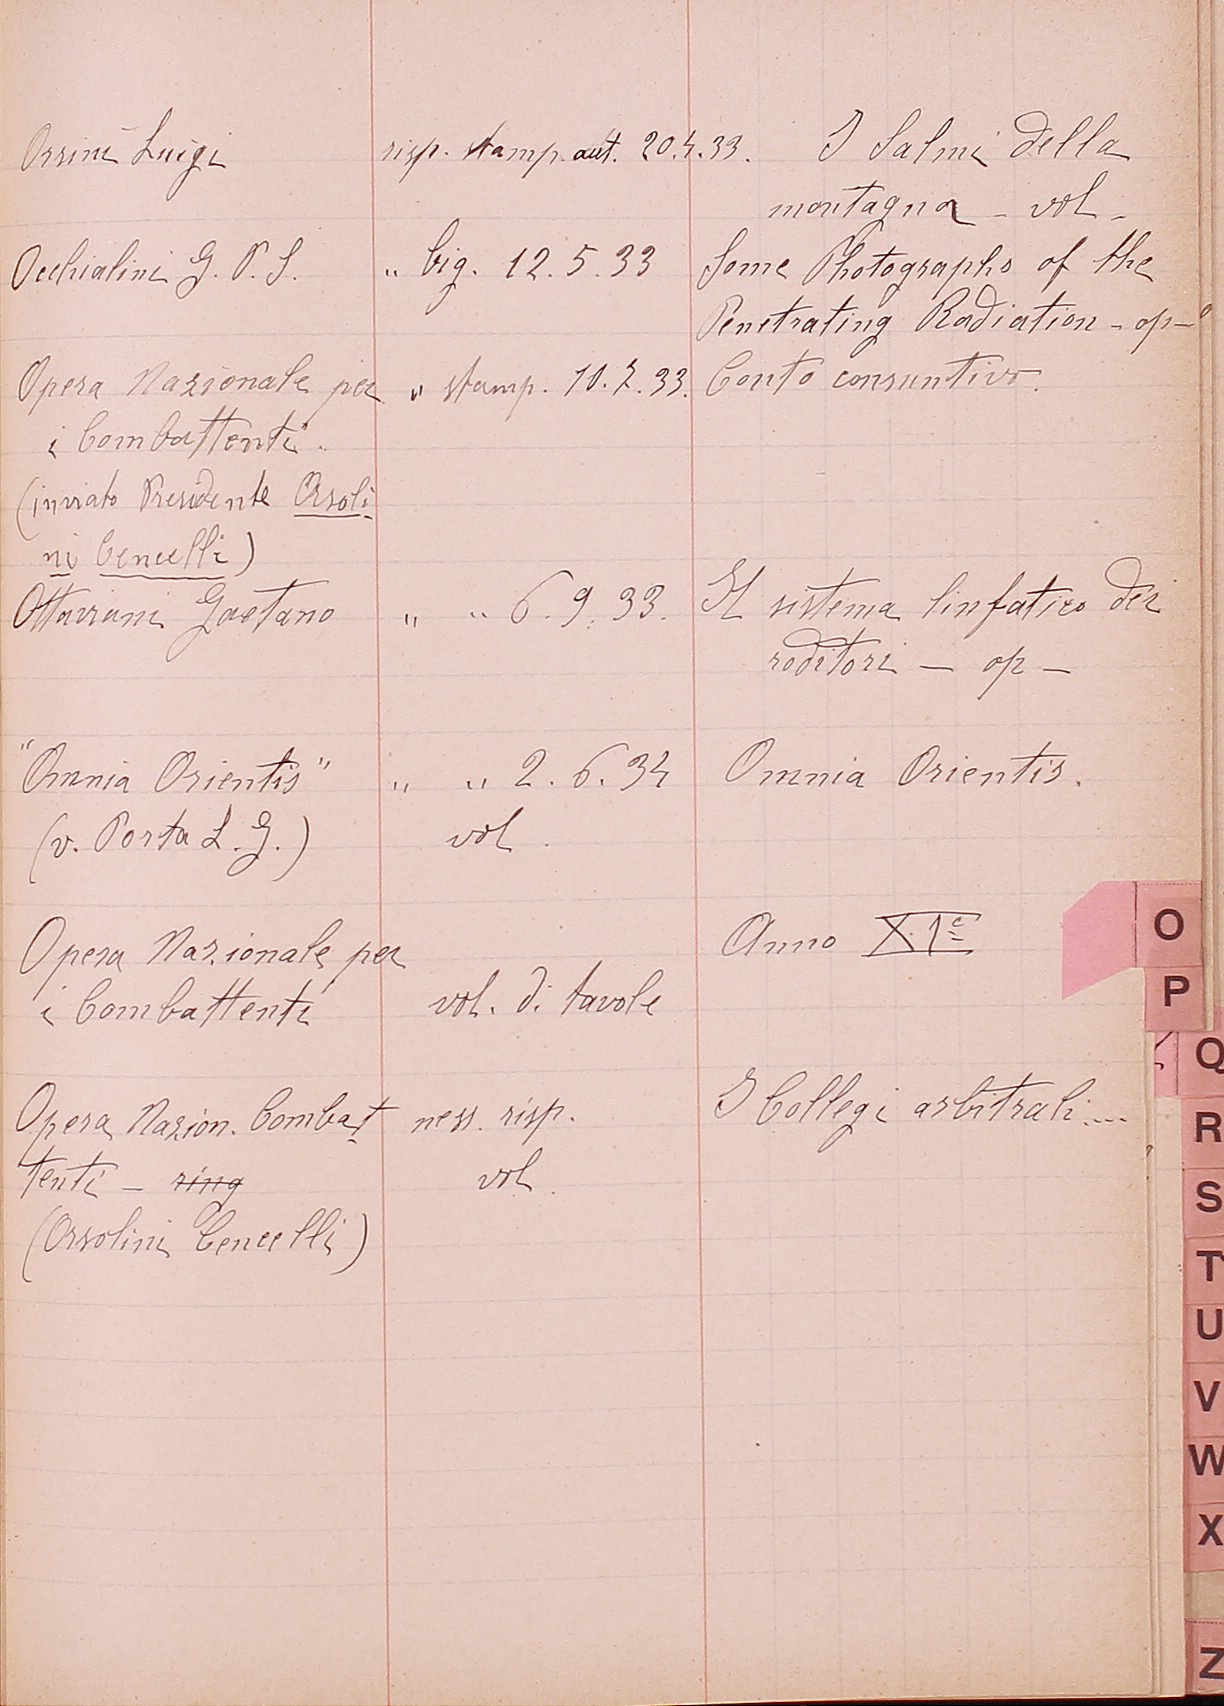 Orsini Luigi risp. stamp. aut. 20.4.33. I Salmi della
montagna - vol -
Occhialini G. P. S. " big. 12.5.33 Some Photographs of the
Penetrating Radiation - op -
Opera Nazionale per " stamp. 10.7.33. Conto consuntivo.
i Combattenti.
(inviato Presidente Orsoli
ni Cencelli)
Ottaviani Gaetano " " 6.9.33. Il sistema linfatico dei
roditori - op -
"Omnia Orientis" " " 2.6.34 Omnia Orientis.
(v. Porta L. G.) vol.
Opera Nazionale per Anno XI°
i Combattenti vol. di tavole
Opera Nazion. Combat ness. risp. I Collegi arbitrali....
tenti - ring vol.
(Orsolini Cencelli)
O
P
Q
R
S
T
U
V
W
X
Z